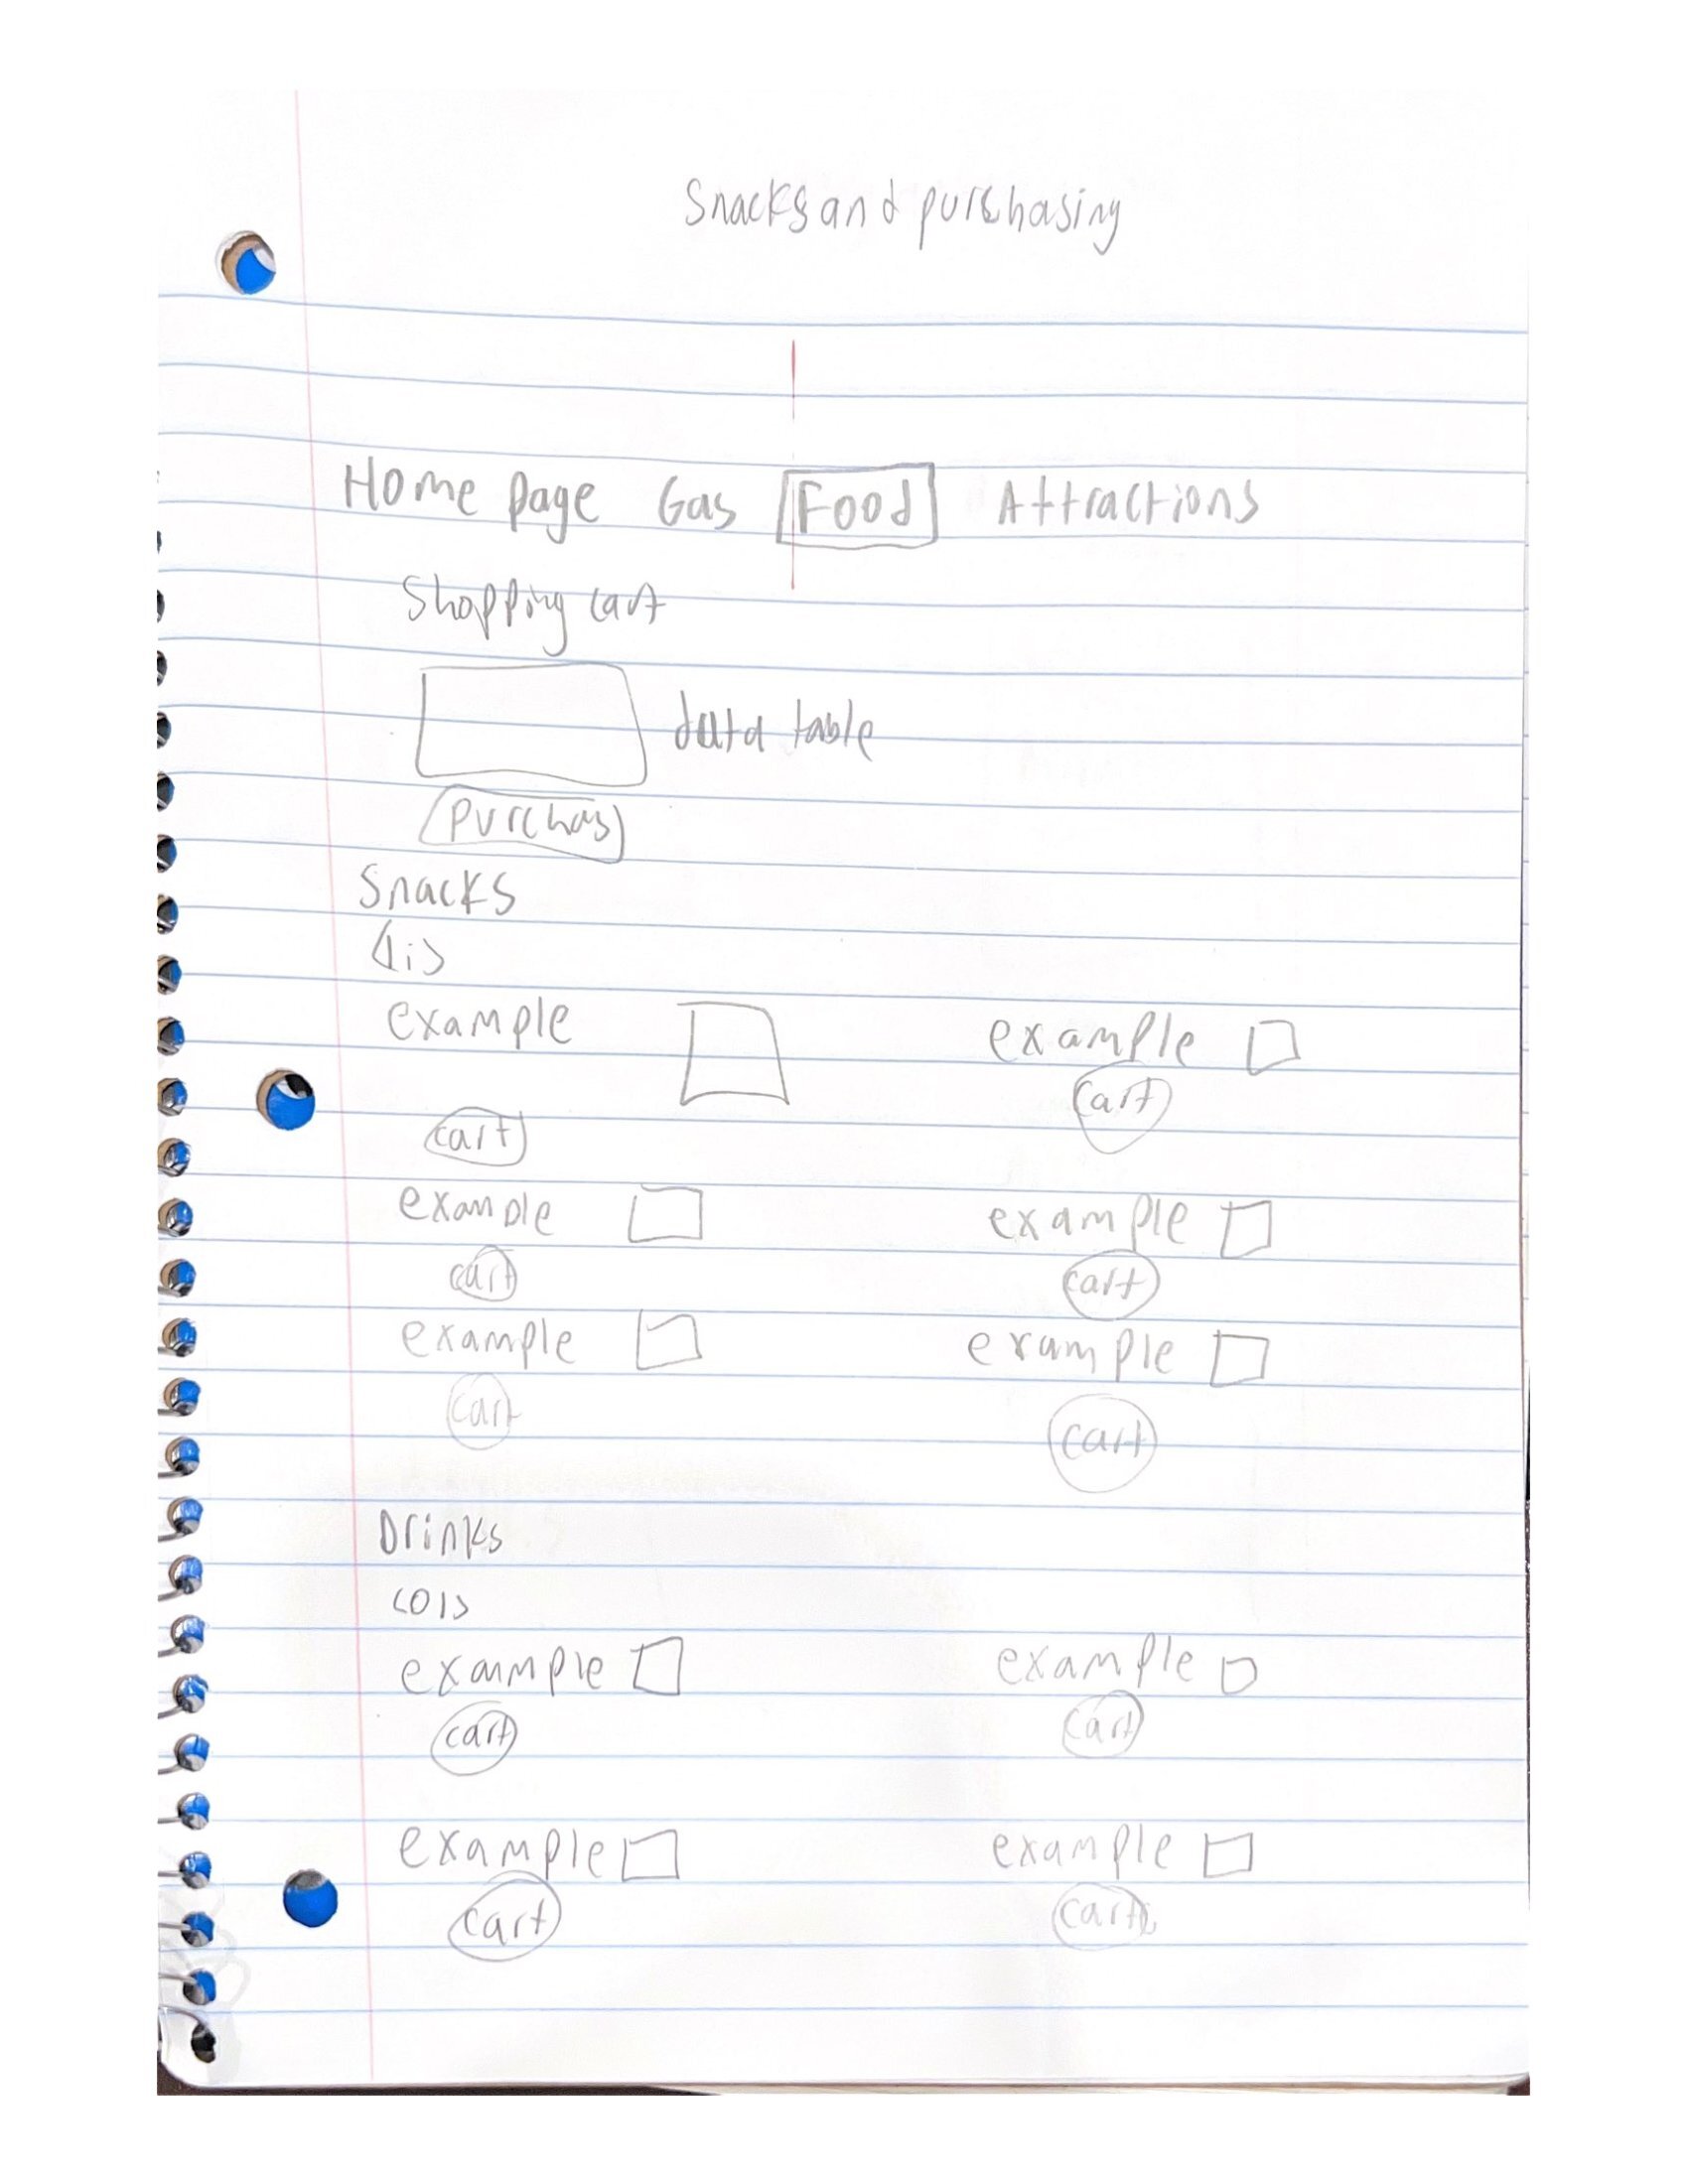 Snacks and purchasing
Home page Gas Food Attractions
Shopping cart
data table
purchas
Snacks
example example
cart cart
example example
cart cart
example example
cart cart
Drinks
example example
cart cart
example example
cart cart